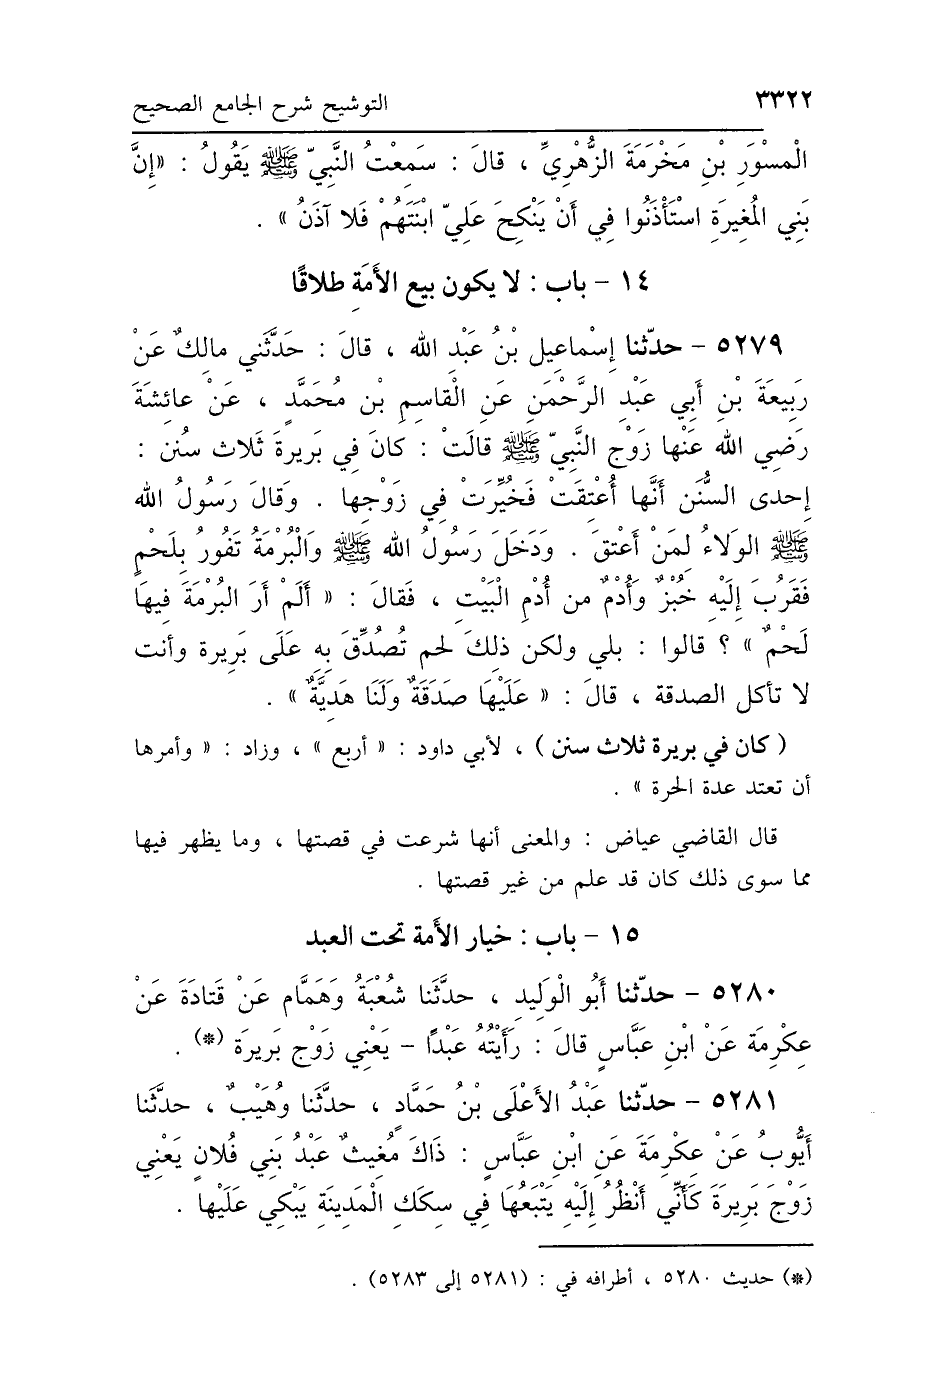 ٣٣٢٢
التوشيح شرح الجامع الصحيح
الْمسْوَرِ بْنِ مَخْرَمَةَ الزُّهْرِيِّ ، قالَ : سَمِعْتُ النَّبِيّ ﷺ يَقُولُ : «إِنَّ
بَنِي الْمُغِيرَةِ اسْتَأْذَنُوا فِي أَنْ يَنْكِحَ عَلِيّ ابْنَتَهُمْ فَلا آذَنُ » .
١٤ – باب : لا يكون بيع الأَمَةِ طلاقًا
٥٢٧٩ – حدّثنا إِسْماعِيل بْنُ عَبْدِ الله ، قالَ : حَدَّثَني مالكٌ عَنْ
رَبِيعَةَ بْنِ أَبِي عَبْدِ الرَّحْمَنِ عَنِ الْقاسِمِ بْنِ مُحَمَّدٍ ، عَنْ عائشَةَ
رَضِي الله عَنْها زَوْجِ النَّبِيّ ﷺ قالَتْ : كانَ فِي بَرِيرةَ ثَلاث سُنَن :
إحدى السُّنَن أَنَّها أُعْتِقَتْ فَخُيِّرَتْ فِي زَوْجِها . وَقالَ رَسُولُ الله
ﷺ الوَلاءُ لِمَنْ أَعْتَقَ . وَدَخَلَ رَسُولُ الله ﷺ وَالْبُرْمَةُ تَفُورُ بِلَحْمٍ
فَقَرُبَ إِلَيْهِ خُبْزٌ وَأُدْمٌ من أُدْمِ الْبَيْتِ ، فَقالَ : « أَلَمْ أَرَ البُرْمَةَ فِيهَا
لَحْمٌ » ؟ قالوا : بلي ولكن ذلكَ لحم تُصُدِّقَ بِهِ عَلَى بَرِيرة وأنت
لا تأكل الصدقة ، قالَ : « عَلَيْهَا صَدَقَةٌ وَلَنَا هَدِيَّةٌ » .
( كان في بريرة ثلاث سنن ) ، لأبي داود : « أربع » ، وزاد : « وأمرها
أن تعتد عدة الحرة » .
قال القاضي عياض : والمعنى أنها شرعت في قصتها ، وما يظهر فيها
مما سوى ذلك كان قد علم من غير قصتها .
١٥ – باب : خيار الأَمة تحت العبد
٥٢٨٠ – حدّثنا أَبُو الْوَلِيدِ ، حدَّثَنا شُعْبَةُ وَهَمَّام عَنْ قَتادَةَ عَنْ
عِكْرِمَة عَنْ ابْنِ عَبَّاسٍ قالَ : رَأَيْتُهُ عَبْدًا – يَعْنِي زَوْجَ بَرِيرَةَ (*) .
٥٢٨١ – حدّثنا عَبْدُ الأَعْلَى بْنُ حَمَّادٍ ، حدَّثَنا وُهَيْبٌ ، حدَّثَنا
أَيُّوبُ عَنْ عِكْرِمَةَ عَنِ ابْنِ عَبَّاسٍ : ذَاكَ مُغِيثٌ عَبْدُ بَنِي فُلانٍ يَعْنِي
زَوْجَ بَرِيرَةَ كَأَنِّي أَنْظُرُ إِلَيْهِ يَتْبَعُهَا فِي سِكَكِ الْمَدِينَةِ يَبْكِي عَلَيْها .
(*) حديث ٥٢٨٠ ، أطرافه في : (٥٢٨١ إلى ٥٢٨٣) .